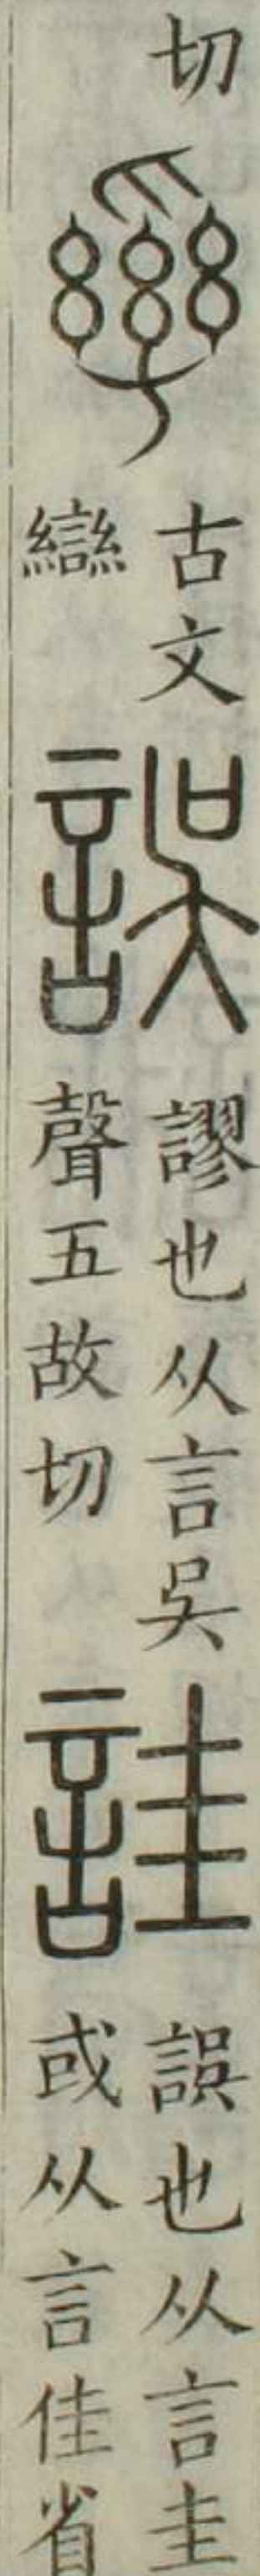 切
古文
䜌
誤
謬也从言吳
聲五故切
詿
誤也从言圭
或从言佳省